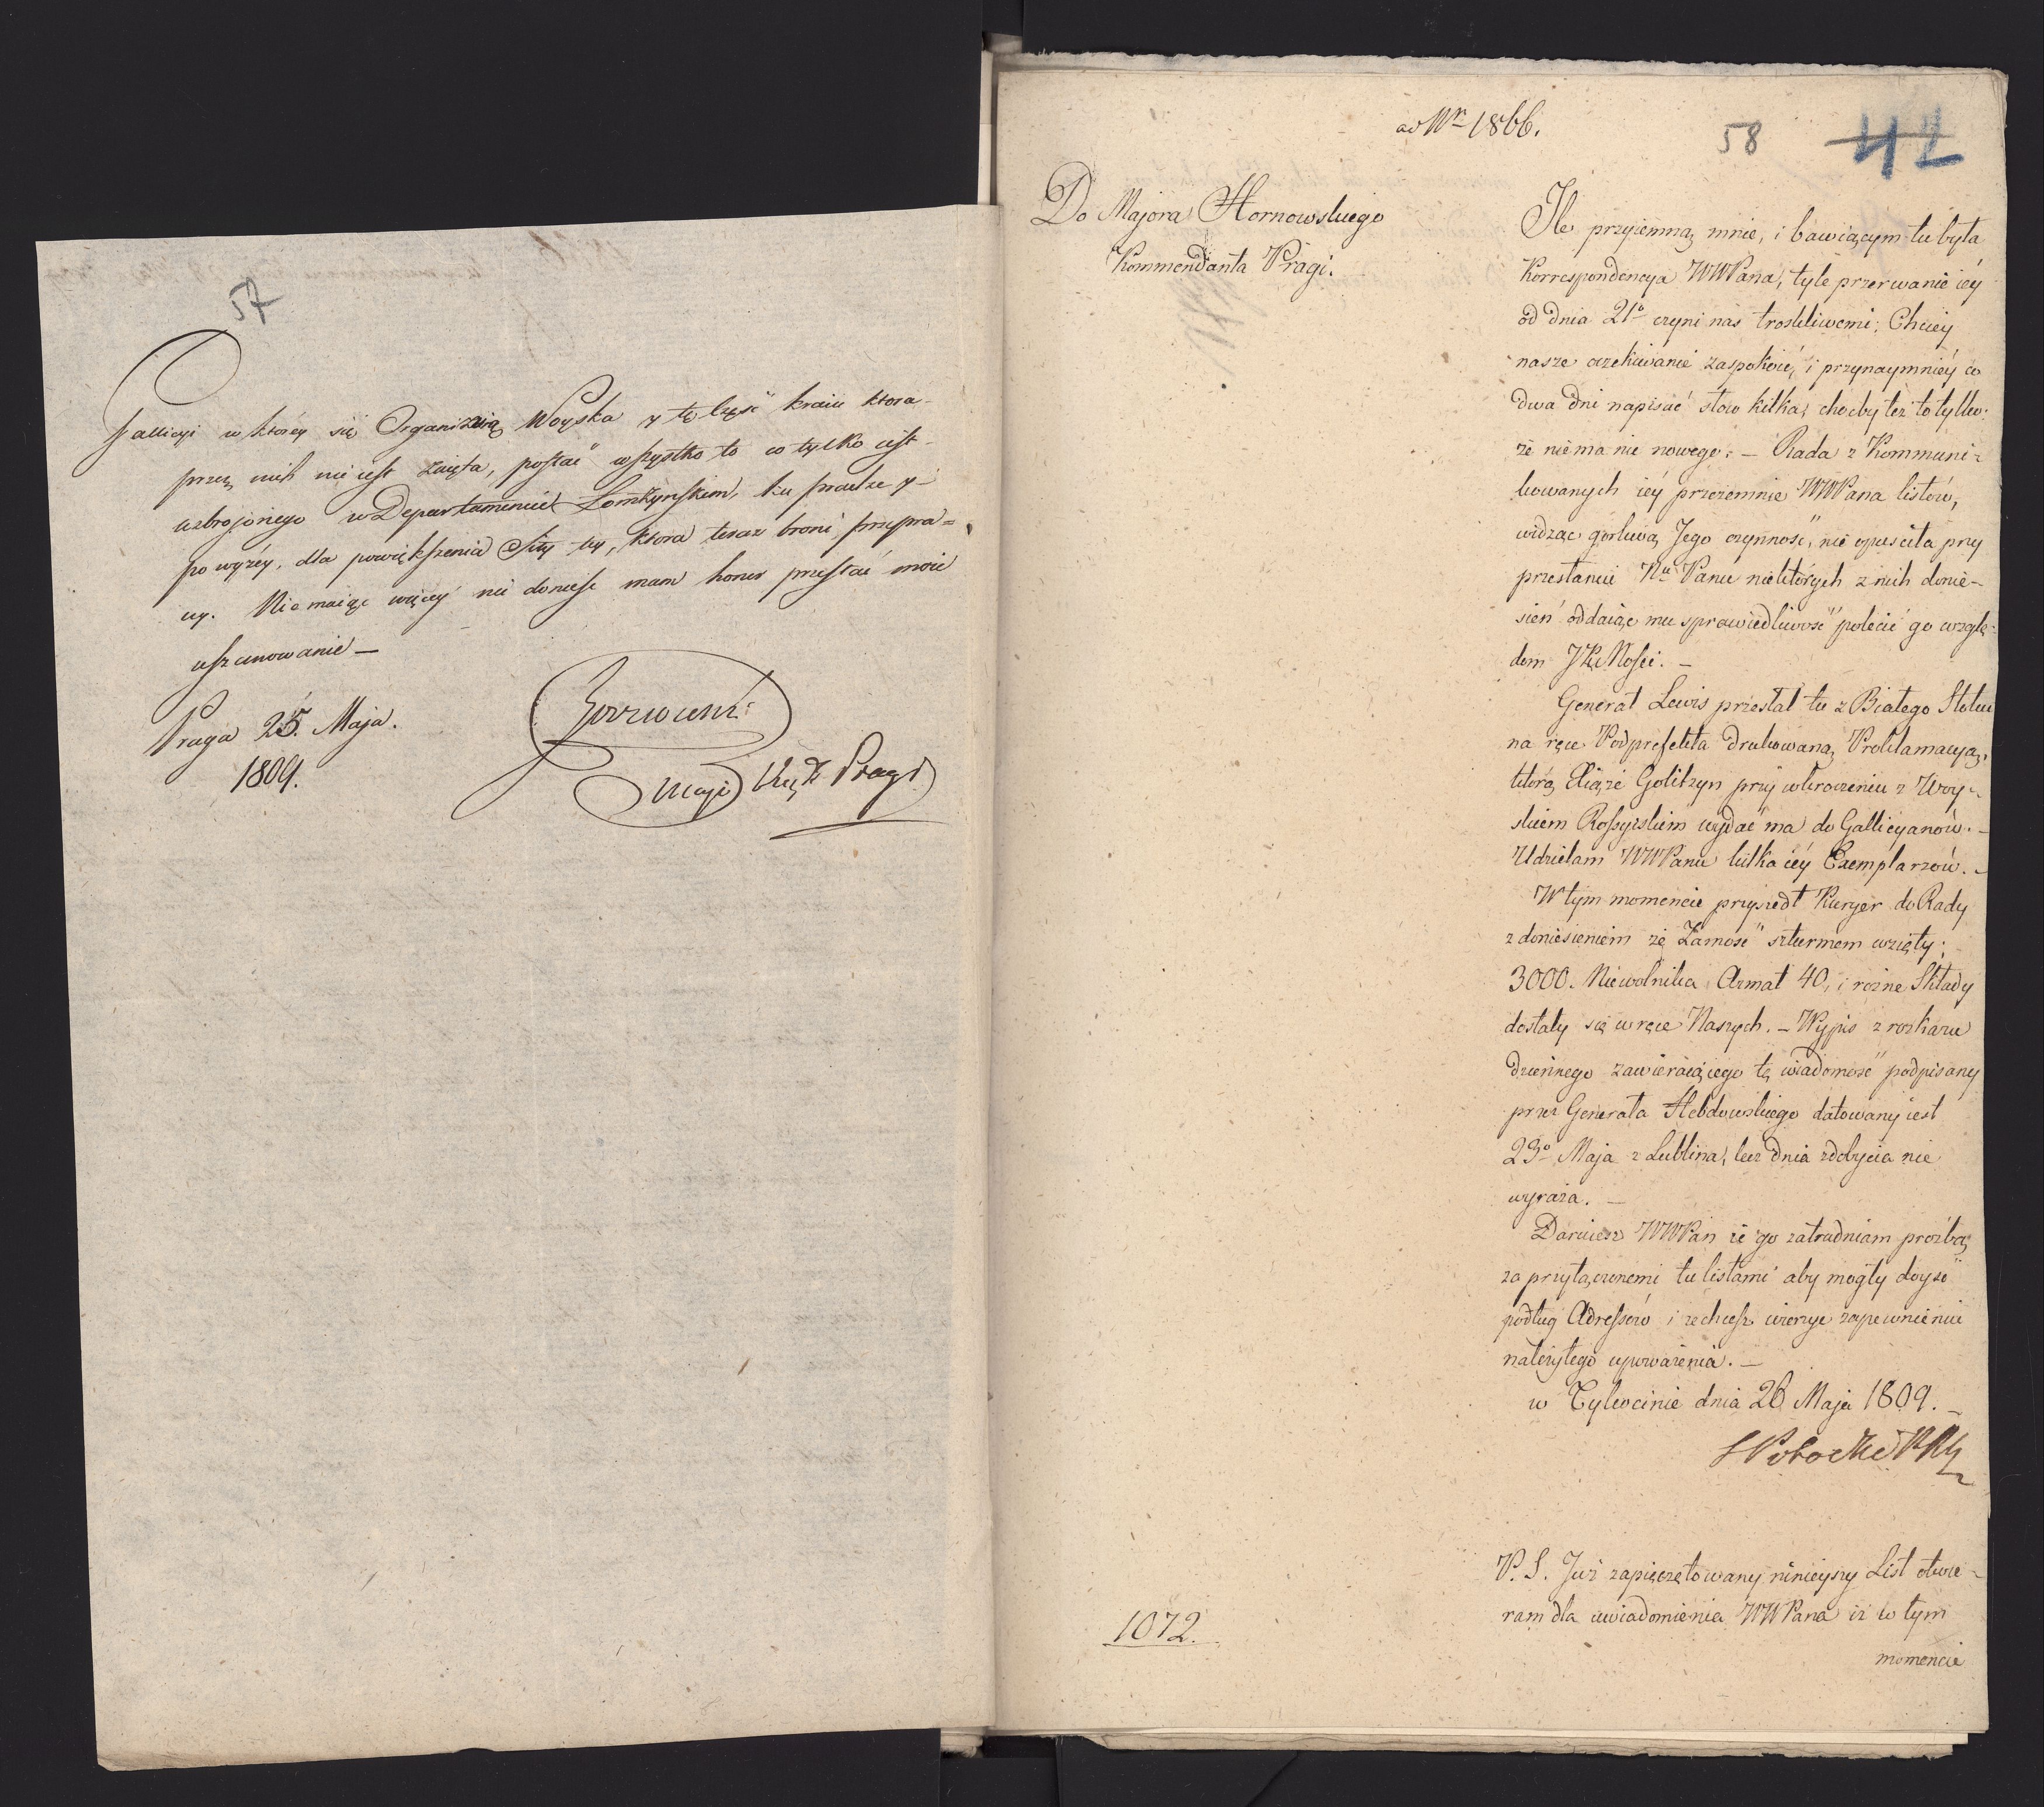 57
Gallicyi w ktorey się Organizuią Woyska y tę część kraiu ktora
przez nich nie iest zaięta, posłać wszystko to co tylko iest
uzbrojonego w Departamencie Łomżynskim, ku Pradze y
powyżey, dla powiększenia Siły tey, ktora teraz broni przepra=
wy. Nie maiąc więcey nic donieść mam honor przesłać moie
uszanowanie —
Praga 25. Maja.
1809.
Hornowski
Major Kmdt Pragi
ad Nr 1866.
58
42
Do Majora Hornowskiego
Kommendanta Pragi.
Ile przyiemną mnie, i bawiącym tu była
Korrespondencya WWPana, tyle przerwanie iéy
od dnia 21º czyni nas troskliwemi; Chciey
nasze oczekiwanie zaspokoić, i przynaymniéy co
dwa dni napisać słow kilka, choćby też to tylko:
że niema nic nowego. — Rada z Kommuni-
kowanych iéy przezemnie WWPana listów,
widząc gorliwą Jego czynność, nie opuściła przy
przesłaniu Xu Panu niektórych z nich donie-
sień oddaiąc mu sprawiedliwość polecić go wzglę-
dom JKMości. —
Generał Lewis przesłał tu z Białego Stoku
na ręce Podprefekta drukowaną Proklamacyą,
którą Xiąże Golitzyn przy wkroczeniu z Woy-
skiem Rossyiskiem wydać ma do Gallicyanów. —
Udzielam WWPanu kilka iéy Exemplarzów. —
W tym momencie przyszedł Kuryer do Rady
z doniesieniem że Zamość szturmem wzięty;
3000. Niewolnika, Armat 40, i rożne Składy
dostały się w ręce Naszych. — Wypis z rozkazu
dziennego zawieraiącego tę wiadomość podpisany
przez Generała Hebdowskiego datowany iest
23º Maja z Lublina, lecz dnia zdobycia nie
wyraża. —
Daruiesz WWPan że go zatrudniam prozbą
za przyłączonemi tu listami aby mogły doyść
podług Adressów i zechcesz wierzyć zapewnieniu
należytego upoważenia. —
w Tykocinie dnia 26 Maja 1809. —
SPotocki
P. S. Już zapieczętowany ninieyszy List otwie-
ram dla uwiadomienia WWPana iż w tym
momencie
1072.